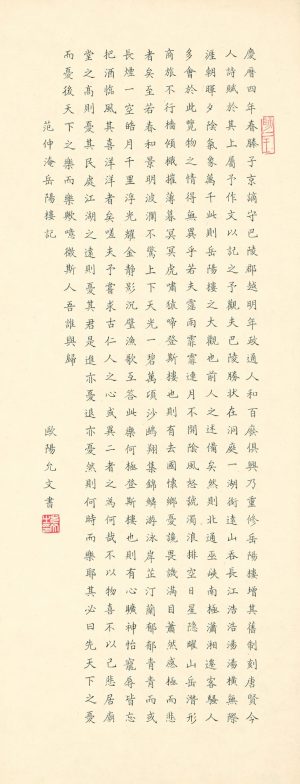 慶曆四年春滕子京謫守巴陵郡越明年政通人和百廢俱興乃重修岳陽樓增其舊制刻唐賢今
人詩賦於其上屬予作文以記之予觀夫巴陵勝狀在洞庭一湖銜遠山吞長江浩浩湯湯橫無際
涯朝暉夕陰氣象萬千此則岳陽樓之大觀也前人之述備矣然則北通巫峽南極瀟湘遷客騷人
多會於此覽物之情得無異乎若夫霪雨霏霏連月不開陰風怒號濁浪排空日星隱耀山岳潛形
商旅不行檣傾楫摧薄暮冥冥虎嘯猿啼登斯樓也則有去國懷鄉憂讒畏譏滿目蕭然感極而悲
者矣至若春和景明波瀾不驚上下天光一碧萬頃沙鷗翔集錦鱗游泳岸芷汀蘭郁郁青青而或
長煙一空皓月千里浮光耀金靜影沉璧漁歌互答此樂何極登斯樓也則有心曠神怡寵辱皆忘
把酒臨風其喜洋洋者矣嗟夫予嘗求古仁人之心或異二者之為何哉不以物喜不以己悲居廟
堂之高則憂其民處江湖之遠則憂其君是進亦憂退亦憂然則何時而樂耶其必曰先天下之憂
而憂後天下之樂而樂歟噫微斯人吾誰與歸
范仲淹岳陽樓記 歐陽允文書